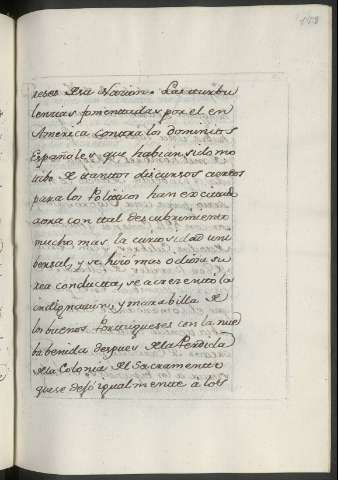 reses de la Nacion. Las turbu
lencias fomentadas por el en
America contra los dominios
Españoles que habian sido mo
tibo de tantos discursos
para los Politicos han excitado
aora con tal descubrimiento
mucho mas la curiosidad uni
bersal, y se hizo mas odiosa su
rea conducta, se acrecentó la
indignacion, y marabilla de
los buenos Portugueses con la nue
ba benida despues de la Perdida
de la Colonia del Sacramento
que se dejó igualmente a los